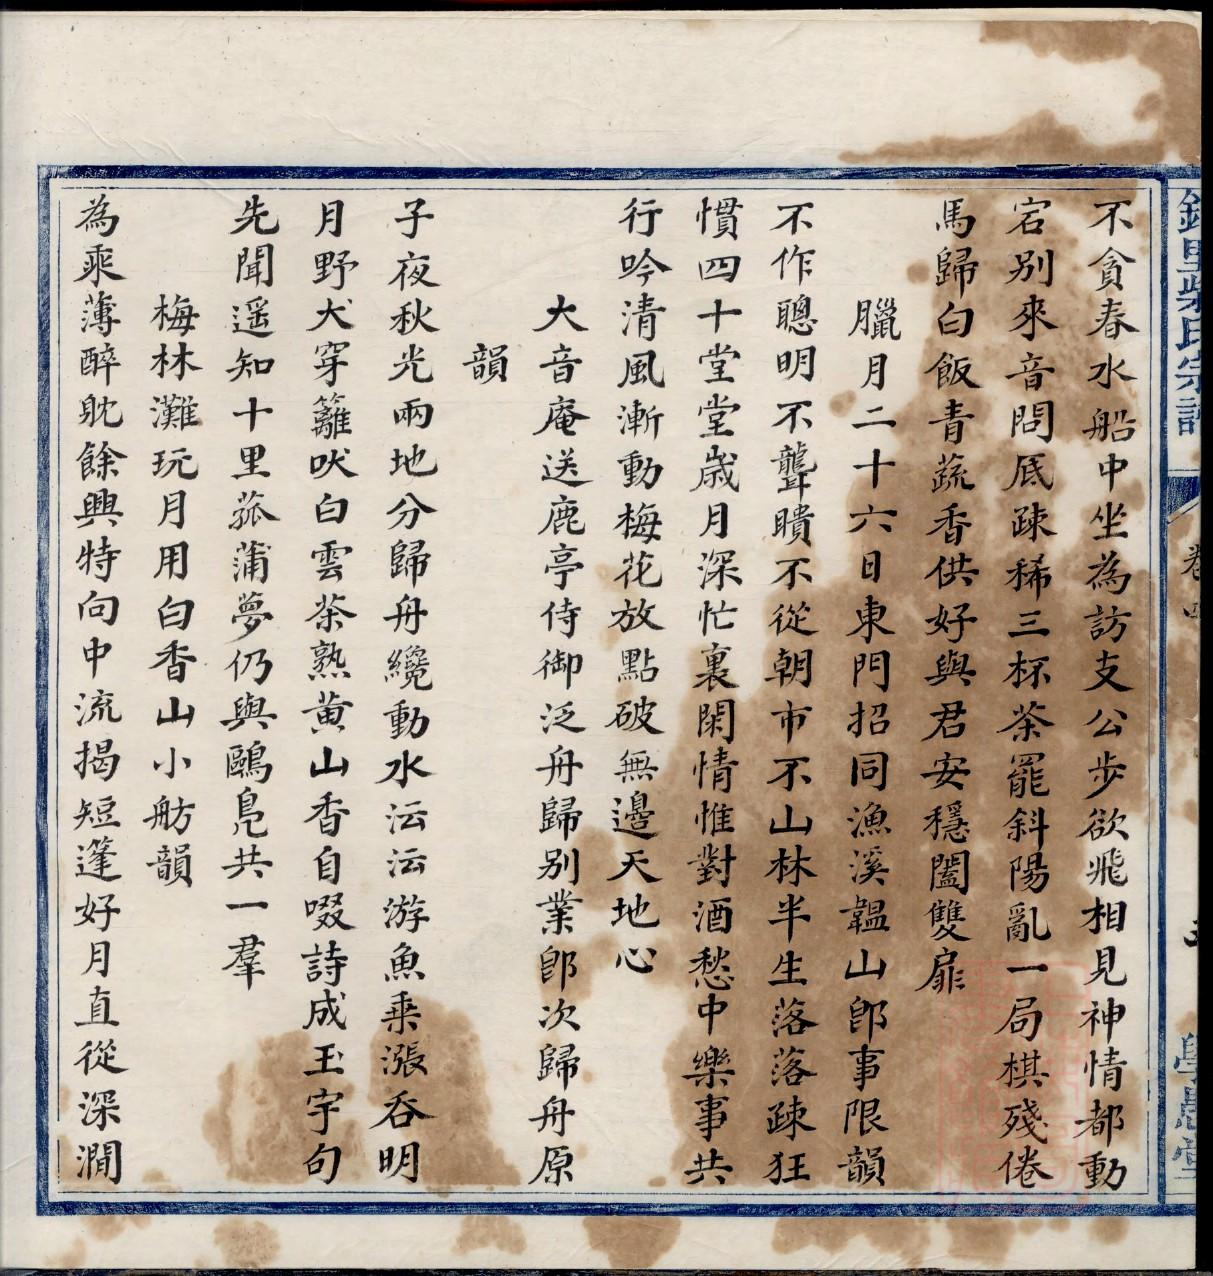 不貪春水船中坐為訪支公步欲飛相見神情都動
宕別來音問底疎稀三杯茶罷斜陽亂一局棋殘倦
馬歸白飯青蔬香供好與君安穩闔雙扉
臘月二十六日東門招同漁溪韞山卽事限韻
不作聰明不聾瞶不從朝市不山林半生落落疎狂
慣四十堂堂歲月深忙裏閑情惟對酒愁中樂事共
行吟清風漸動梅花放點破無邊天地心
大音庵送鹿亭侍御泛舟歸別業卽次歸舟原
韻
子夜秋光兩地分歸舟纔動水沄沄游魚乗漲吞明
月野犬穿籬吠白雲茶熟黄山香自啜詩成玉宇句
先聞遥知十里菰蒲夢仍與鷗鳧共一羣
梅林灘玩月用白香山小舫韻
為乘薄醉躭餘興特向中流揭短篷好月直從深澗
氏宗譜
卷四
學愚堂